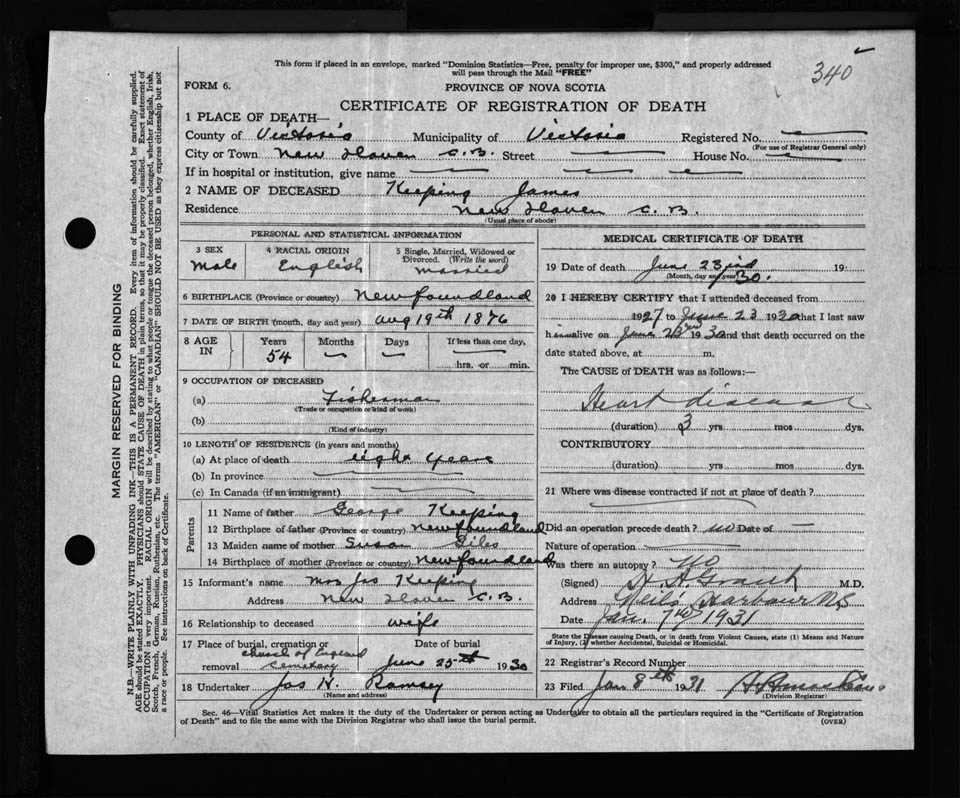 This form if placed in an envelope, marked "Dominion Statistics—Free, penalty for improper use, $300," and properly addressed
will pass through the Mail "FREE"
340
FORM 6.
PROVINCE OF NOVA SCOTIA
CERTIFICATE OF REGISTRATION OF DEATH
1 PLACE OF DEATH—
County of Victoria Municipality of Victoria Registered No.
(For use of Registrar General only)
City or Town New Haven C.B. Street House No.
If in hospital or institution, give name
2 NAME OF DECEASED Keeping James
Residence New Haven C.B.
(Usual place of abode)
PERSONAL AND STATISTICAL INFORMATION
3 SEX 4 RACIAL ORIGIN 5 Single, Married, Widowed or
Divorced. (Write the word)
Male English married
6 BIRTHPLACE (Province or country) Newfoundland
7 DATE OF BIRTH (month, day and year) Aug 19th 1876
8 AGE IN Years Months Days If less than one day,
54 — — hrs. or min.
9 OCCUPATION OF DECEASED
(a) Fisherman
(Trade or occupation or kind of work)
(b)
(Kind of industry)
10 LENGTH OF RESIDENCE (in years and months)
(a) At place of death eight years
(b) In province
(c) In Canada (if an immigrant)
Parents
11 Name of father George Keeping
12 Birthplace of father (Province or country) Newfoundland
13 Maiden name of mother Susan Giles
14 Birthplace of mother (Province or country) Newfoundland
15 Informant's name Mrs Jas Keeping
Address New Haven C.B.
16 Relationship to deceased wife
17 Place of burial, cremation or Date of burial
removal Church of England Cemetary June 25th 1930
18 Undertaker Jas H. Ramsey
(Name and address)
MEDICAL CERTIFICATE OF DEATH
19 Date of death June 23rd 30. 19
(Month, day and year)
20 I HEREBY CERTIFY that I attended deceased from
1927 to June 23 1930 that I last saw
him alive on June 23rd 1930 and that death occurred on the
date stated above, at m.
The CAUSE of DEATH was as follows:—
Heart disease
(duration) 3 yrs mos dys.
CONTRIBUTORY
(duration) yrs mos dys.
21 Where was disease contracted if not at place of death?
Did an operation precede death? no Date of —
Nature of operation
Was there an autopsy? no
(Signed) M.D.
Address Neil's Harbour N.S
Date Jan. 7th 1931
State the Disease causing Death, or in death from Violent Causes, state (1) Means and Nature
of Injury, (2) whether Accidental, Suicidal or Homicidal.
22 Registrar's Record Number
23 Filed Jan 8th 1931
(Division Registrar)
Sec. 46—Vital Statistics Act makes it the duty of the Undertaker or person acting as Undertaker to obtain all the particulars required in the "Certificate of Registration
of Death" and to file the same with the Division Registrar who shall issue the burial permit.
(OVER)
MARGIN RESERVED FOR BINDING
N.B.—WRITE PLAINLY WITH UNFADING INK—THIS IS A PERMANENT RECORD. Every item of information should be carefully supplied.
AGE should be stated EXACTLY. PHYSICIANS should STATE CAUSE OF DEATH in plain terms, so that it may be properly classified. Exact statement of
OCCUPATION is very important. RACIAL ORIGIN will be described by stating to what people or tongue the deceased person belonged, whether English, Irish,
Scotch, French, German, Russian, Ruthenian, etc. The terms "AMERICAN" or "CANADIAN" SHOULD NOT BE USED as they express citizenship but not
a race or people. See instructions on back of Certificate.